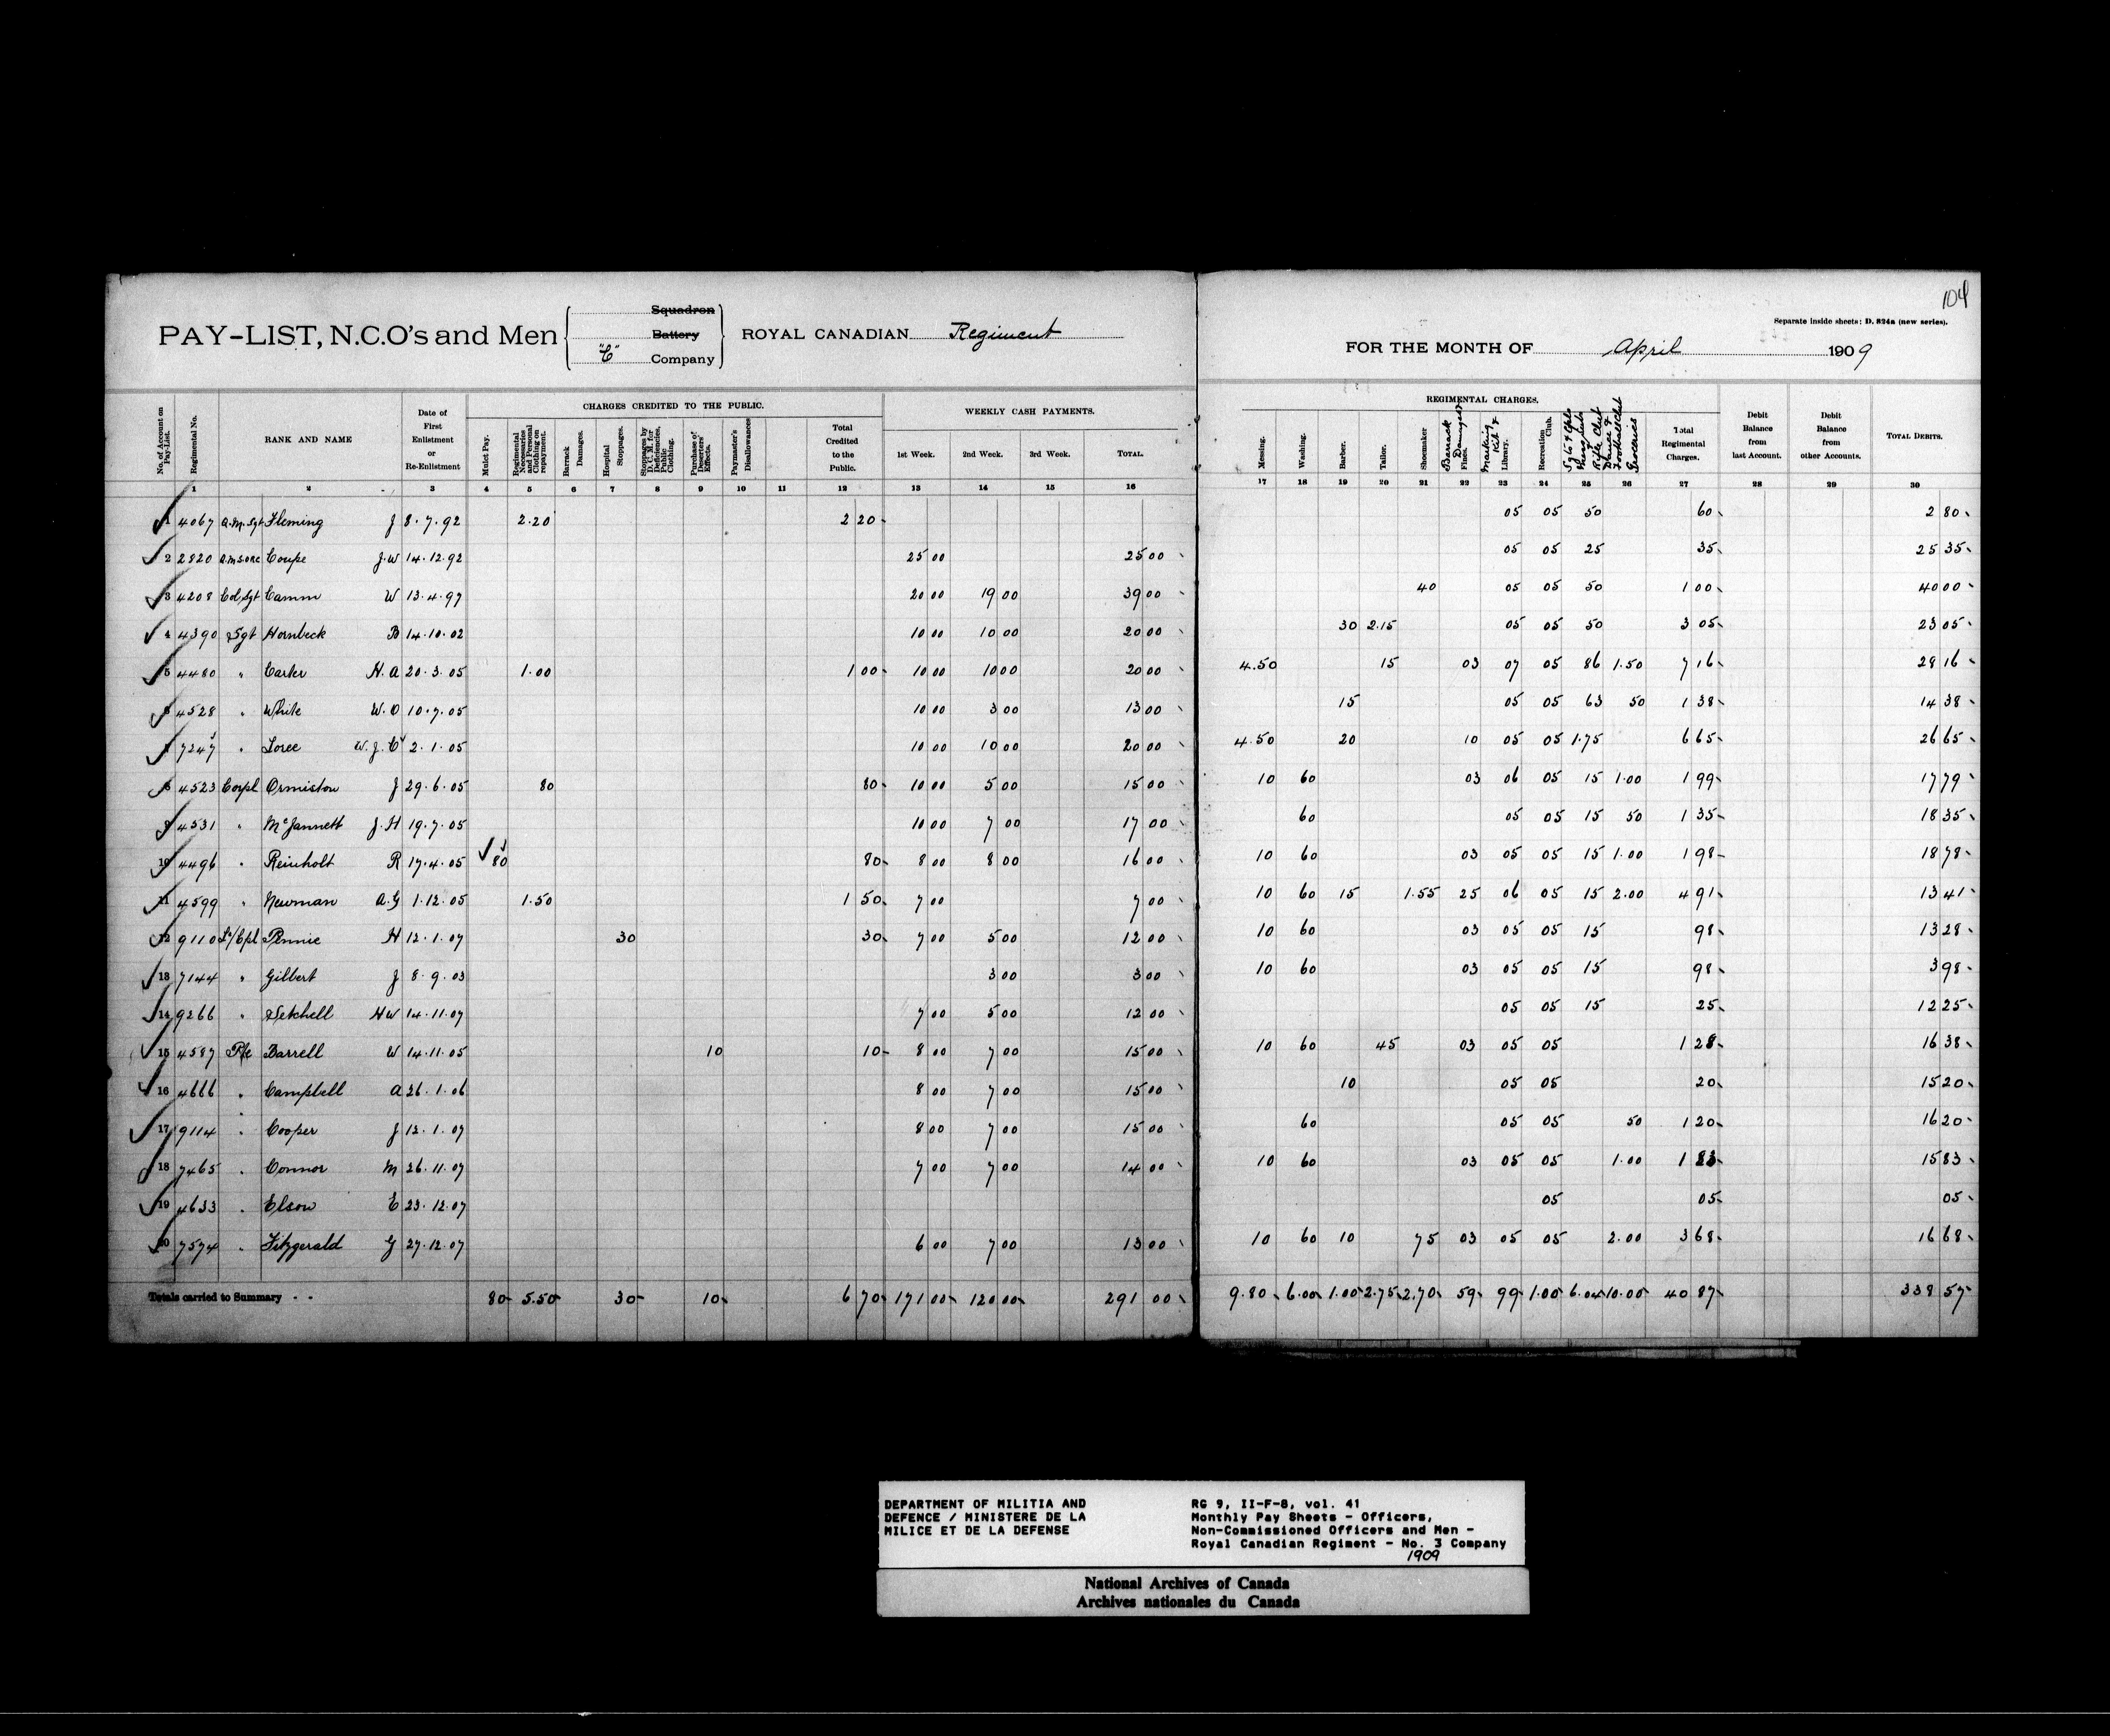 104
Separate inside sheets: D. 824a (new series).
PAY-LIST, N.C.O's and Men
Squadron
Battery
"C" Company
ROYAL CANADIAN Regiment
FOR THE MONTH OF April 1909
CHARGES CREDITED TO THE PUBLIC.
WEEKLY CASH PAYMENTS.
REGIMENTAL CHARGES.
No. of Account on Pay-List.
Regimental No.
RANK AND NAME
Date of First Enlistment or Re-Enlistment
Mulct Pay.
Regimental Necessaries and Personal Clothing on repayment.
Barrack Damages.
Hospital Stoppages.
Stoppages by D.C.M. for Deficiencies, Public Clothing.
Purchase of Deserters' Effects.
Paymaster's Disallowances
Total Credited to the Public.
1st Week.
2nd Week.
3rd Week.
TOTAL.
Messing.
Washing.
Barber.
Tailor.
Shoemaker
Barrack Damages
Fines.
Marking Kit &
Library.
Recreation Club.
Rifle Club
Football Club
Groceries
Total Regimental Charges.
Debit Balance from last Account.
Debit Balance from other Accounts.
TOTAL DEBITS.
1 2 3 4 5 6 7 8 9 10 11 12 13 14 15 16 17 18 19 20 21 22 23 24 25 26 27 28 29 30
1 4067 Q.M. Sgt Fleming J 8.7.92 2.20 2 20 05 05 50 60 2 80
2 2820 Coupe J.W 14.12.92 25 00 25 00 05 05 25 35 25 35
3 4208 Col Sgt Camm W 13.4.97 20 00 19 00 39 00 40 05 05 50 1 00 40 00
4 4390 Sgt Hornbeck B 14.10.02 10 00 10 00 20 00 30 2.15 05 05 50 3 05 23 05
5 4480 " Carter H.A 20.3.05 1.00 1 00 10 00 10 00 20 00 4.50 15 03 07 05 86 1.50 7 16 28 16
6 4528 " White W.O 10.7.05 10 00 3 00 13 00 15 05 05 63 50 1 38 14 38
7 7247 " Loree W.J.C 2.1.05 10 00 10 00 20 00 4.50 20 10 05 05 1.75 6 65 26 65
8 4523 Corpl Ormiston J 29.6.05 80 80 10 00 5 00 15 00 10 60 03 06 05 15 1.00 1 99 17 79
9 4531 " McJannett J.H 19.7.05 10 00 7 00 17 00 60 05 05 15 50 1 35 18 35
10 4496 " Reinholt R 17.4.05 80 80 8 00 8 00 16 00 10 60 03 05 05 15 1.00 1 98 18 78
11 4599 " Newman A.G 1.12.05 1.50 1 50 7 00 7 00 10 60 15 1.55 25 06 05 15 2.00 4 91 13 41
12 9110 L/Cpl Pennie H 12.1.07 30 30 7 00 5 00 12 00 10 60 03 05 05 15 98 13 28
13 7144 " Gilbert J 8.9.03 3 00 3 00 10 60 03 05 05 15 98 3 98
14 9266 " Setchell HW 14.11.07 7 00 5 00 12 00 05 05 15 25 12 25
15 4587 Pte Barrell W 14.11.05 10 10 8 00 7 00 15 00 10 60 45 03 05 05 1 28 16 38
16 4666 " Campbell A 26.1.06 8 00 7 00 15 00 10 05 05 20 15 20
17 9114 " Cooper J 12.1.07 8 00 7 00 15 00 60 05 05 50 1 20 16 20
18 7465 " Connor M 26.11.07 7 00 7 00 14 00 10 60 03 05 05 1.00 1 83 15 83
19 4633 " Elson E 23.12.07 05 05 05
20 7574 " Fitzgerald G 27.12.07 6 00 7 00 13 00 10 60 10 75 03 05 05 2.00 3 68 16 68
Totals carried to Summary - - 80 5.50 30 10 6 70 171 00 120 00 291 00 9.80 6.00 1.00 2.75 2.70 59 99 1.00 6.04 10.00 40 87 338 57
DEPARTMENT OF MILITIA AND
DEFENCE / MINISTERE DE LA
MILICE ET DE LA DEFENSE
RG 9, II-F-8, vol. 41
Monthly Pay Sheets - Officers,
Non-Commissioned Officers and Men -
Royal Canadian Regiment - No. 3 Company
1909
National Archives of Canada
Archives nationales du Canada